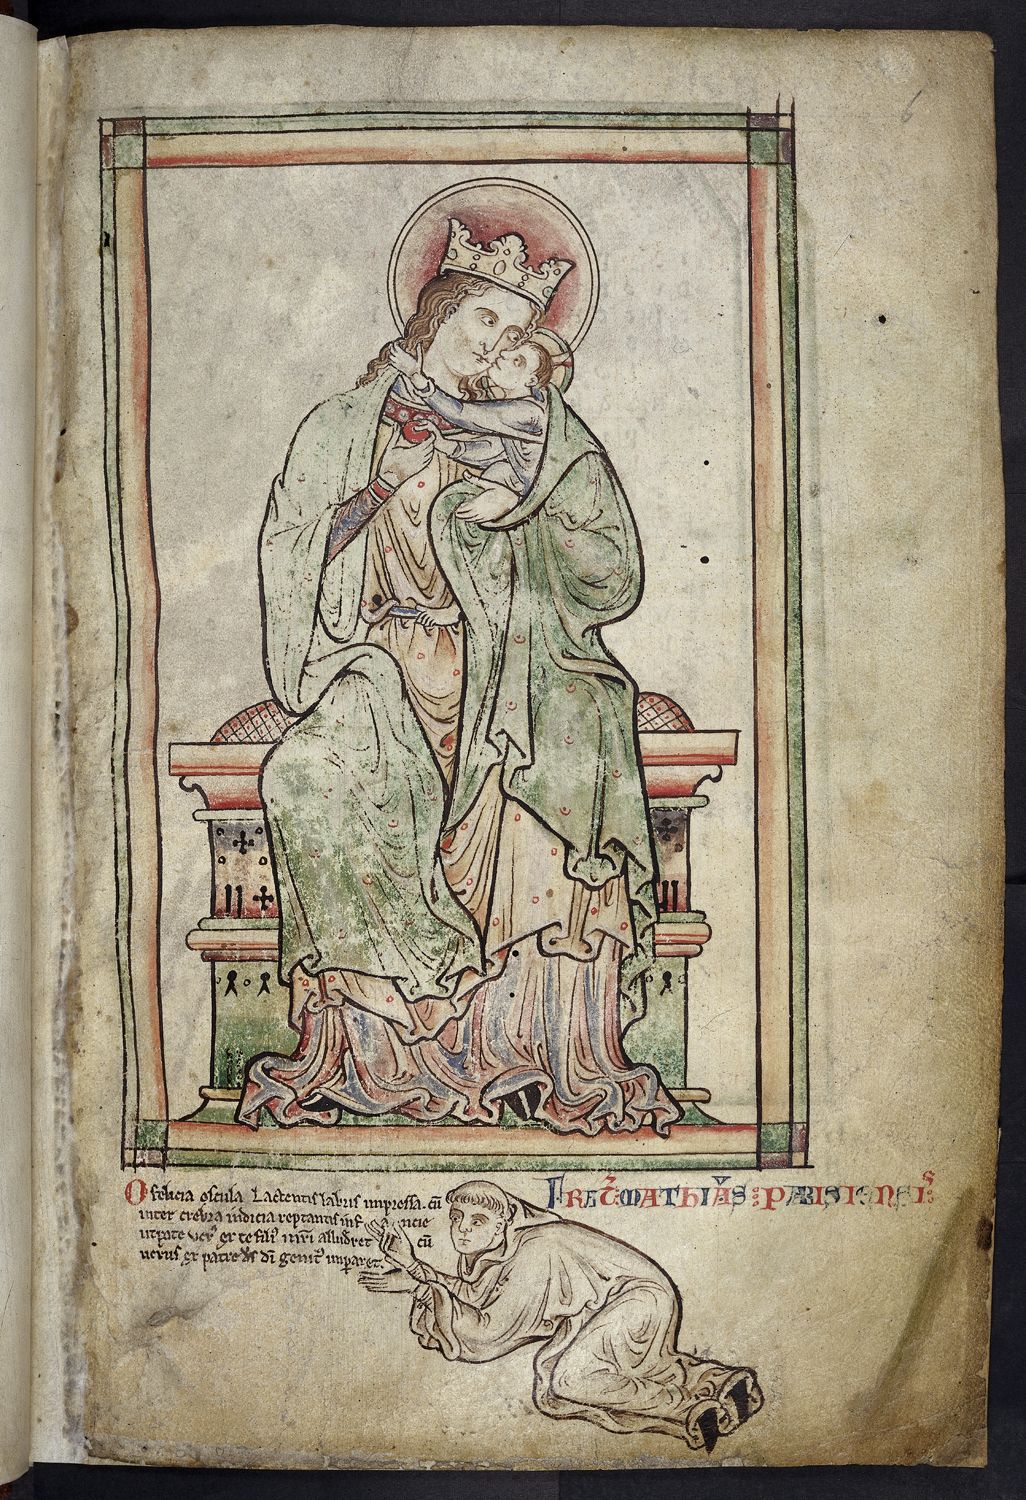 6
O felicia oscula Lactentis labris impressa. cū
inter crebra indicia reptantis infancie
utpote verꝰ ex te filiꝰ m̄ri alluderet cū
verus ex patre dī genitꝰ imparet.
FRAT̄ MATHIAS PARISIENSIS